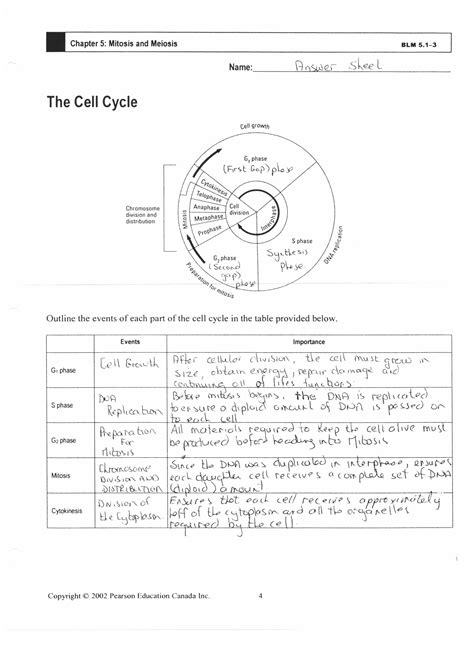 Chapter 5: Mitosis and Meiosis
BLM 5.1–3
Name: Answer Sheet
The Cell Cycle
Cell growth
G₁ phase
(First Gap) phase
Cytokinesis
Telophase
Anaphase
Metaphase
Prophase
Cell division
Mitosis
Interphase
Chromosome
division and
distribution
S phase
Synthesis
Phase
DNA replication
G₂ phase
(Second
gap)
phase
Preparation for mitosis
Outline the events of each part of the cell cycle in the table provided below.
Events Importance
G₁ phase
Cell Growth
After cellular division, the cell must grow in
size, obtain energy, repair damage and
continuing all of lifes functions
S phase
DNA
Replication
Before mitosis begins, the DNA is replicated
to ensure a diploid amount of DNA is passed on
to each cell
G₂ phase
Preparation
For
Mitosis
All materials required to keep the cell alive must
be produced before heading into Mitosis
Mitosis
Chromosome
Division AND
DISTRIBUTION
Since the DNA was duplicated in interphase, ensures
each daughter cell receives a complete set of DNA
(diploid) amount
Cytokinesis
Division of
the Cytoplasm
Ensures that each cell receives approximately
of the cytoplasm and all the organelles
required by the cell.
Copyright © 2002 Pearson Education Canada Inc.
4